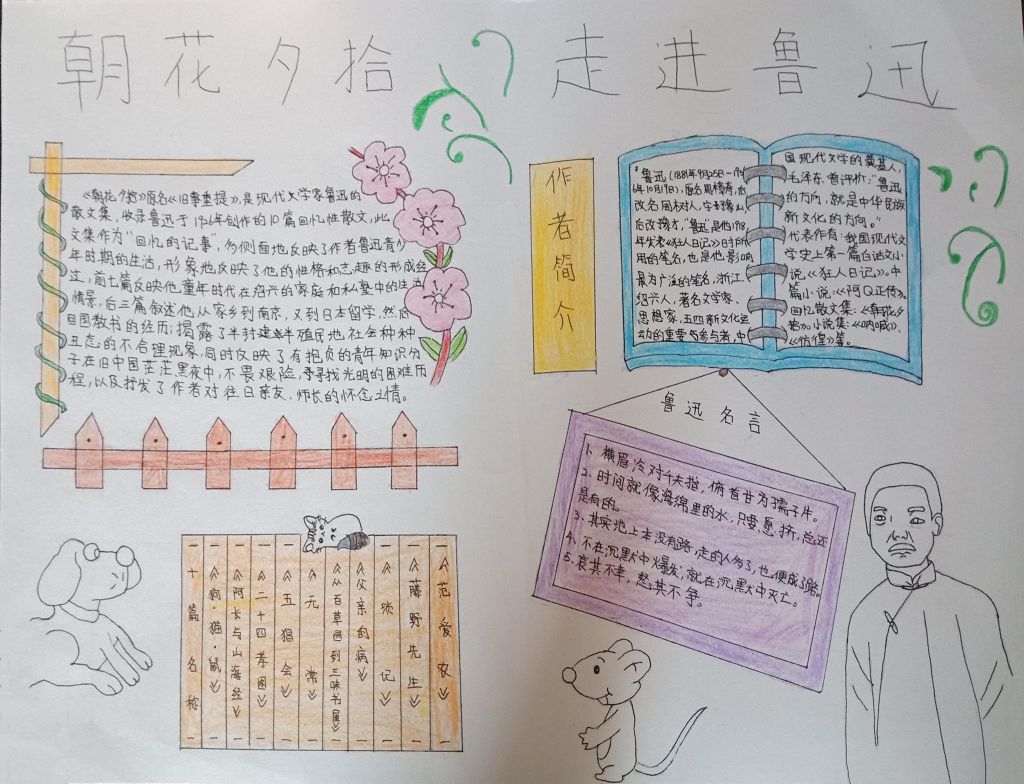 朝花夕拾 走进鲁迅
《朝花夕拾》原名《旧事重提》,是现代文学家鲁迅的
散文集,收录鲁迅于1926年创作的10篇回忆性散文,此
文集作为“回忆的记事”,多侧面地反映了作者鲁迅青少
年时期的生活,形象地反映了他的性格和志趣的形成经
过,前七篇反映他童年时代在绍兴的家庭和私塾中的生活
情景,后三篇叙述他从家乡到南京,又到日本留学,然后
回国教书的经历;揭露了半封建半殖民地社会种种
丑态的不合理现象,同时反映了有抱负的青年知识分
子在旧中国茫茫黑夜中,不畏艰险,寻找光明的困难历
程,以及抒发了作者对往日亲友、师长的怀念之情。
作者简介
鲁迅(1881年9月25日-19
年10月19日),原名周樟寿,后
改名周树人,字豫山,
后改豫才,“鲁迅”是他1918
年发表《狂人日记》时所
用的笔名,也是他影响
最为广泛的笔名,浙江
绍兴人,著名文学家、
思想家,五四新文化运
动的重要参与者,中
国现代文学的奠基人,
毛泽东曾评价:“鲁迅
的方向,就是中华民族
新文化的方向。”
代表作有:我国现代文
学史上第一篇白话文小
说《狂人日记》。中
篇小说:《阿Q正传》。
散文集:《朝花夕
拾》。小说集:《呐喊》、
《彷徨》等。
鲁迅名言
1、横眉冷对千夫指,俯首甘为孺子牛。
2、时间就像海绵里的水,只要愿挤,总还
是有的。
3、其实地上本没有路,走的人多了,也便成了路。
4、不在沉默中爆发,就在沉默中灭亡。
5、哀其不幸,怒其不争。
十篇名称
《狗·猫·鼠》
《阿长与山海经》
《二十四孝图》
《五猖会》
《无常》
《从百草园到三味书屋》
《父亲的病》
《琐记》
《藤野先生》
《范爱农》